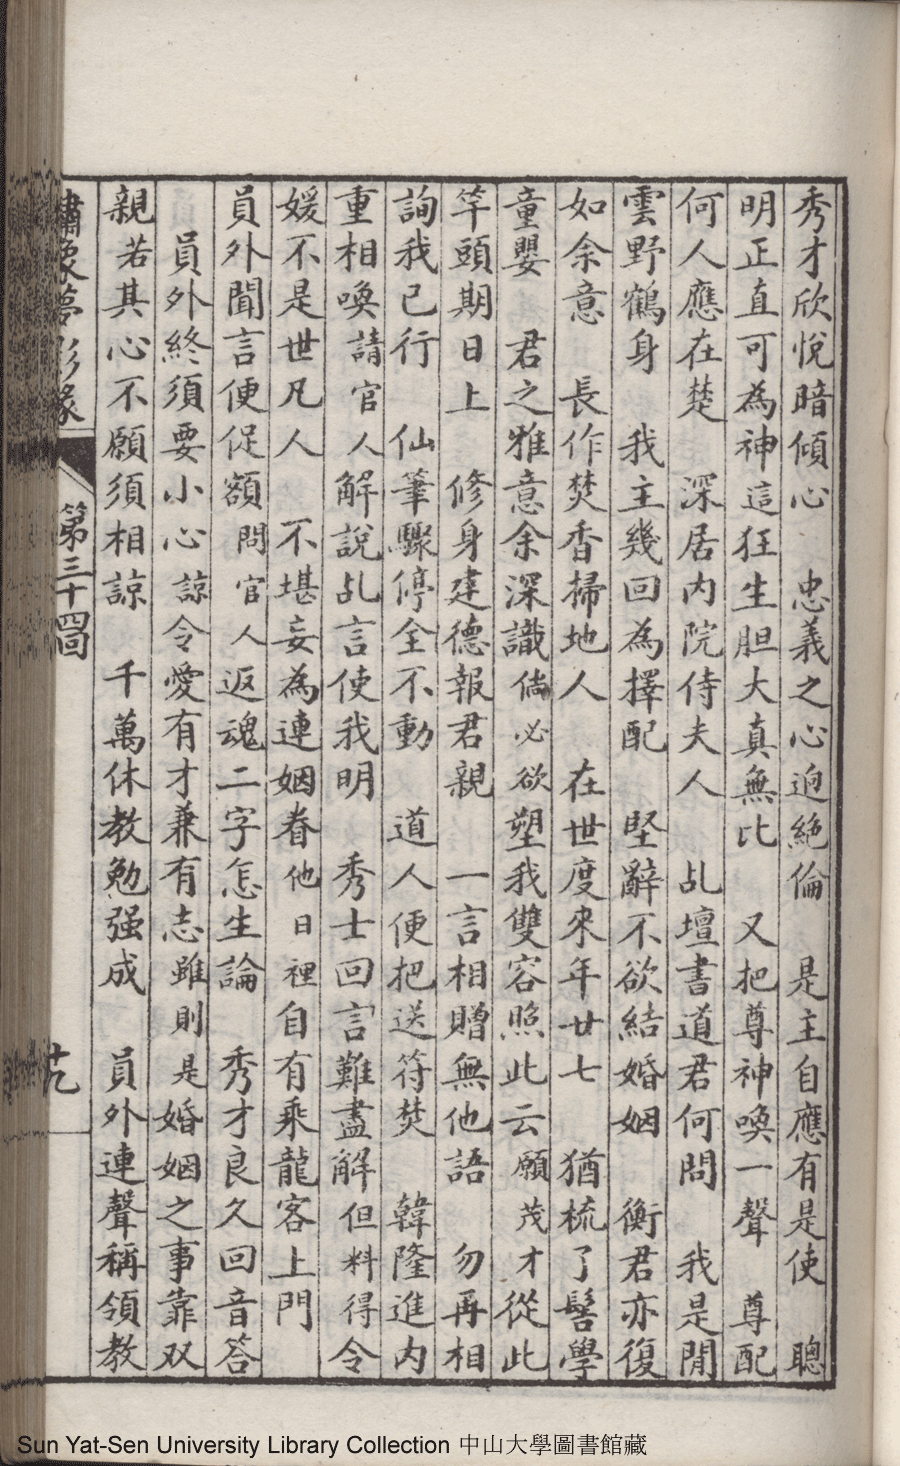 秀才欣悅暗傾心　忠義之心迥絕倫　是主自應有是使　聰
明正直可為神這狂生胆大真無比　又把尊神喚一聲　尊配
何人應在楚　深居内院侍夫人　乩壇書道君何問　我是閒
雲野鶴身　我主幾回為擇配　堅辭不欲結婚姻　衡君亦復
如余意　長作焚香掃地人　在世度來年廿七　猶梳了髻學
童嬰　君之雅意余深識倘必欲塑我雙容照此云願茂才從此
竿頭期日上　修身建德報君親　一言相贈無他語　勿再相
詢我已行　仙筆驟停全不動　道人便把送符焚　韓隆進内
重相喚請官人解說乩言使我明　秀士回言難盡解但料得令
媛不是世凡人　不堪妄為連姻眷他日裡自有乘龍客上門
員外聞言便促額問官人返魂二字怎生論　秀才良久回音答
員外終須要小心諒令愛有才兼有志雖則是婚姻之事靠双
親若其心不願須相諒　千萬休教勉强成　員外連聲稱領教
繡像夢影緣
第三十四回
Sun Yat-Sen University Library Collection 中山大學圖書館藏